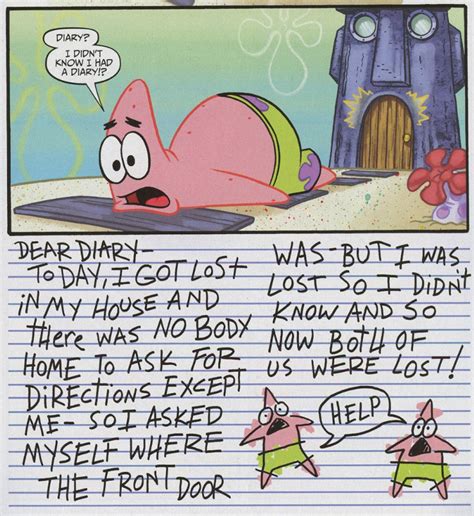 DIARY?
I DIDN'T
KNOW I HAD
A DIARY!?
DEAR DIARY—
TODAY, I GOT LOST
IN MY HOUSE AND
tHERE WAS NO BODY
HOME TO ASK FOR
DIRECTIONS EXCEPT
ME- SO I ASKED
MYSELF WHERE
THE FRONT DOOR
WAS-BUT I WAS
LOST SO I DIDN't
KNOW AND SO
NOW BOTH OF
US WERE LOST!
HELP